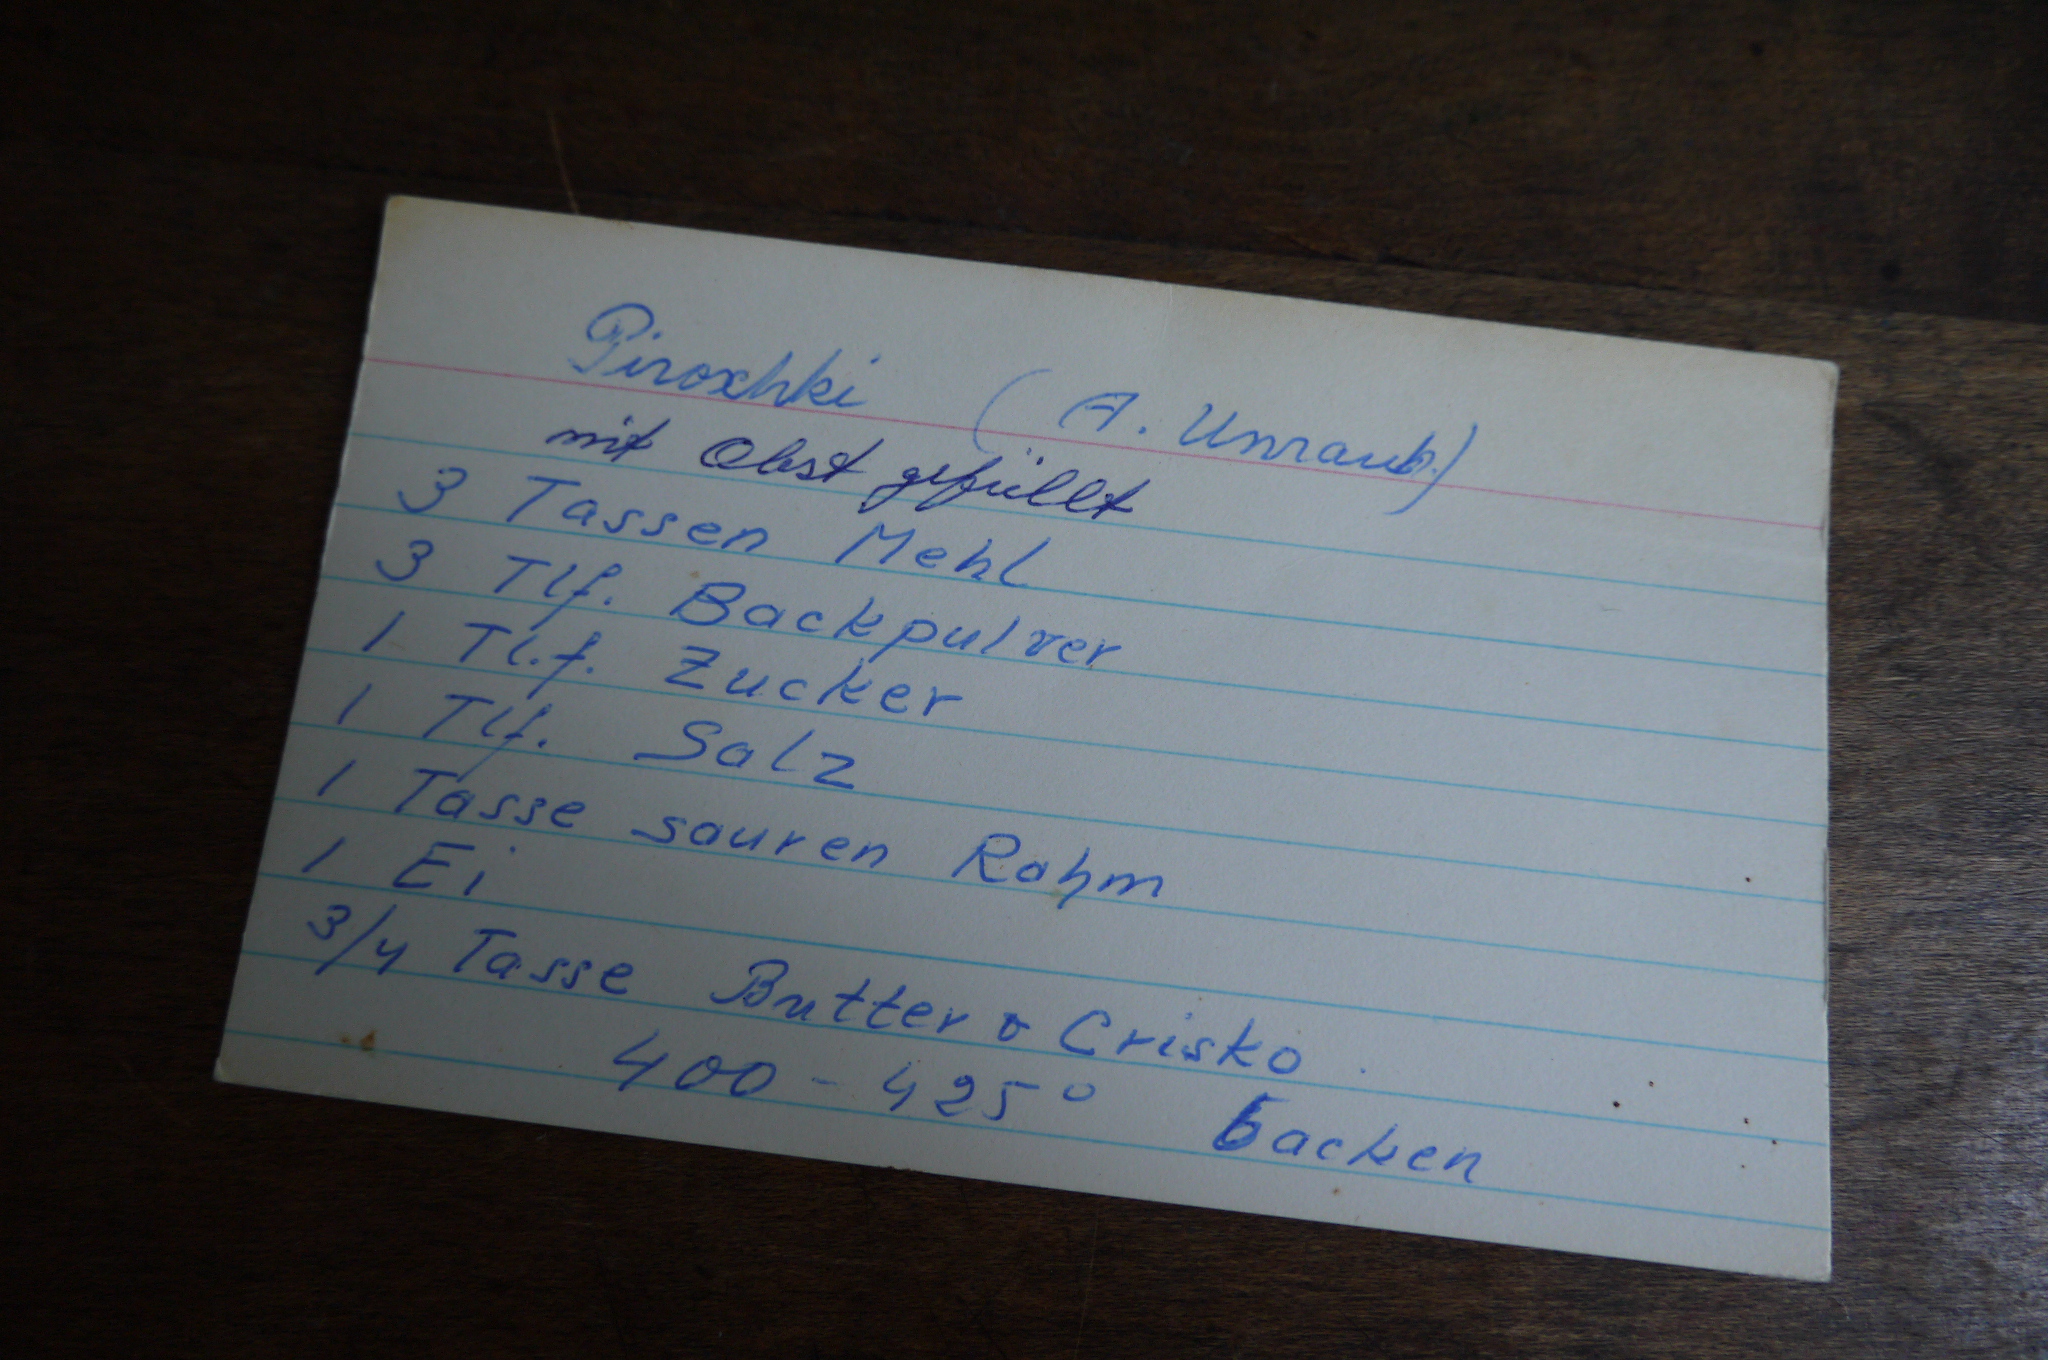 Piroshki (A. Unrauh)
mit Obst gefüllt
3 Tassen Mehl
3 Tlf. Backpulver
1 Tl.f. Zucker
1 Tlf. Salz
1 Tasse sauren Rahm
1 Ei
3/4 Tasse Butter & Crisko
400 - 425° backen